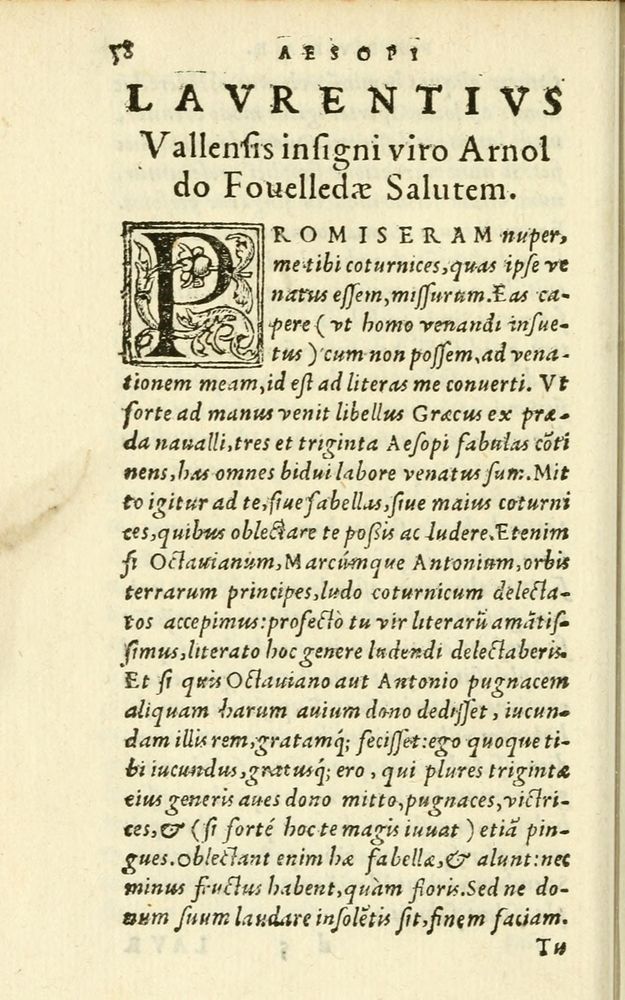 58 AESOPI
LAVRENTIVS
Vallenſis inſigni viro Arnol
do Fouelledæ Salutem.
PROMISERAM nuper,
me tibi coturnices, quas ipſe ve
natus eſſem, miſſurum. Eas ca-
pere (vt homo venandi inſue-
tus) cum non poſſem, ad vena-
tionem meam, id eſt ad literas me conuerti. Vt
forte ad manus venit libellus Græcus ex præ-
da nauali, tres et triginta Aeſopi fabulas cōti
nens, has omnes bidui labore venatus ſum. Mit
to igitur ad te, ſiue fabellas, ſiue maius coturni
ces, quibus oblectare te poßis ac ludere. Etenim
ſi Octauianum, Marcúmque Antonium, orbis
terrarum principes, ludo coturnicum delecta-
tos accepimus: profectò tu vir literarū amātiſ-
ſimus, literato hoc genere ludendi delectaberis.
Et ſi quis Octauiano aut Antonio pugnacem
aliquam harum auium dono dediſſet, iucun-
dam illis rem, gratamq́; feciſſet: ego quoque ti-
bi iucundus, gratusq́; ero, qui plures trigintæ
eius generis aues dono mitto, pugnaces, victri-
ces, & (ſi forté hoc te magis iuuat) etiā pin-
gues. Oblectant enim hæ fabellæ, & alunt: nec
minus fructus habent, quàm floris. Sed ne do-
num ſuum laudare inſolētis ſit, finem faciam.
Tu